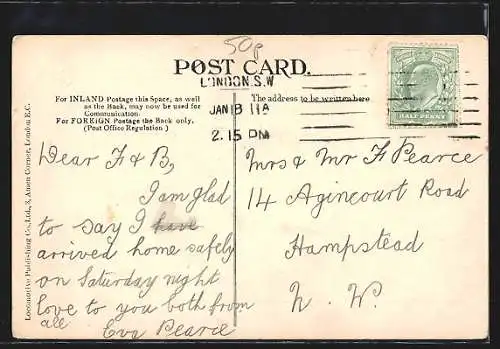 50p
POST CARD.
LONDON. S.W
JAN 18 11A
2. 15 PM
For INLAND Postage this Space, as well
as the Back, may now be used for
Communication.
For FOREIGN Postage the Back only.
(Post Office Regulation)
The address to be written here
HALF PENNY
Locomotive Publishing Co., Ltd., 3, Amen Corner, London E.C.
Dear F & B,
I am glad
to say I have
arrived home safely
on Saturday night
love to you both from
all Eva Pearce
Mrs & Mr F Pearce
14 Agincourt Road
Hampstead
N. W.